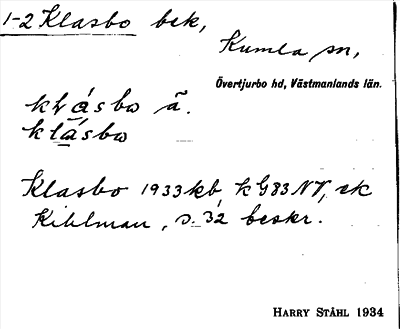 1-2 Klasbo bek,
Kumla sn,
Övertjurbo hd, Västmanlands län.
klásbo ã.
klásbo
Klasbo 1933 kb, kG83NV, ek
Kihlman, s. 32 beskr.
HARRY STÅHL 1934